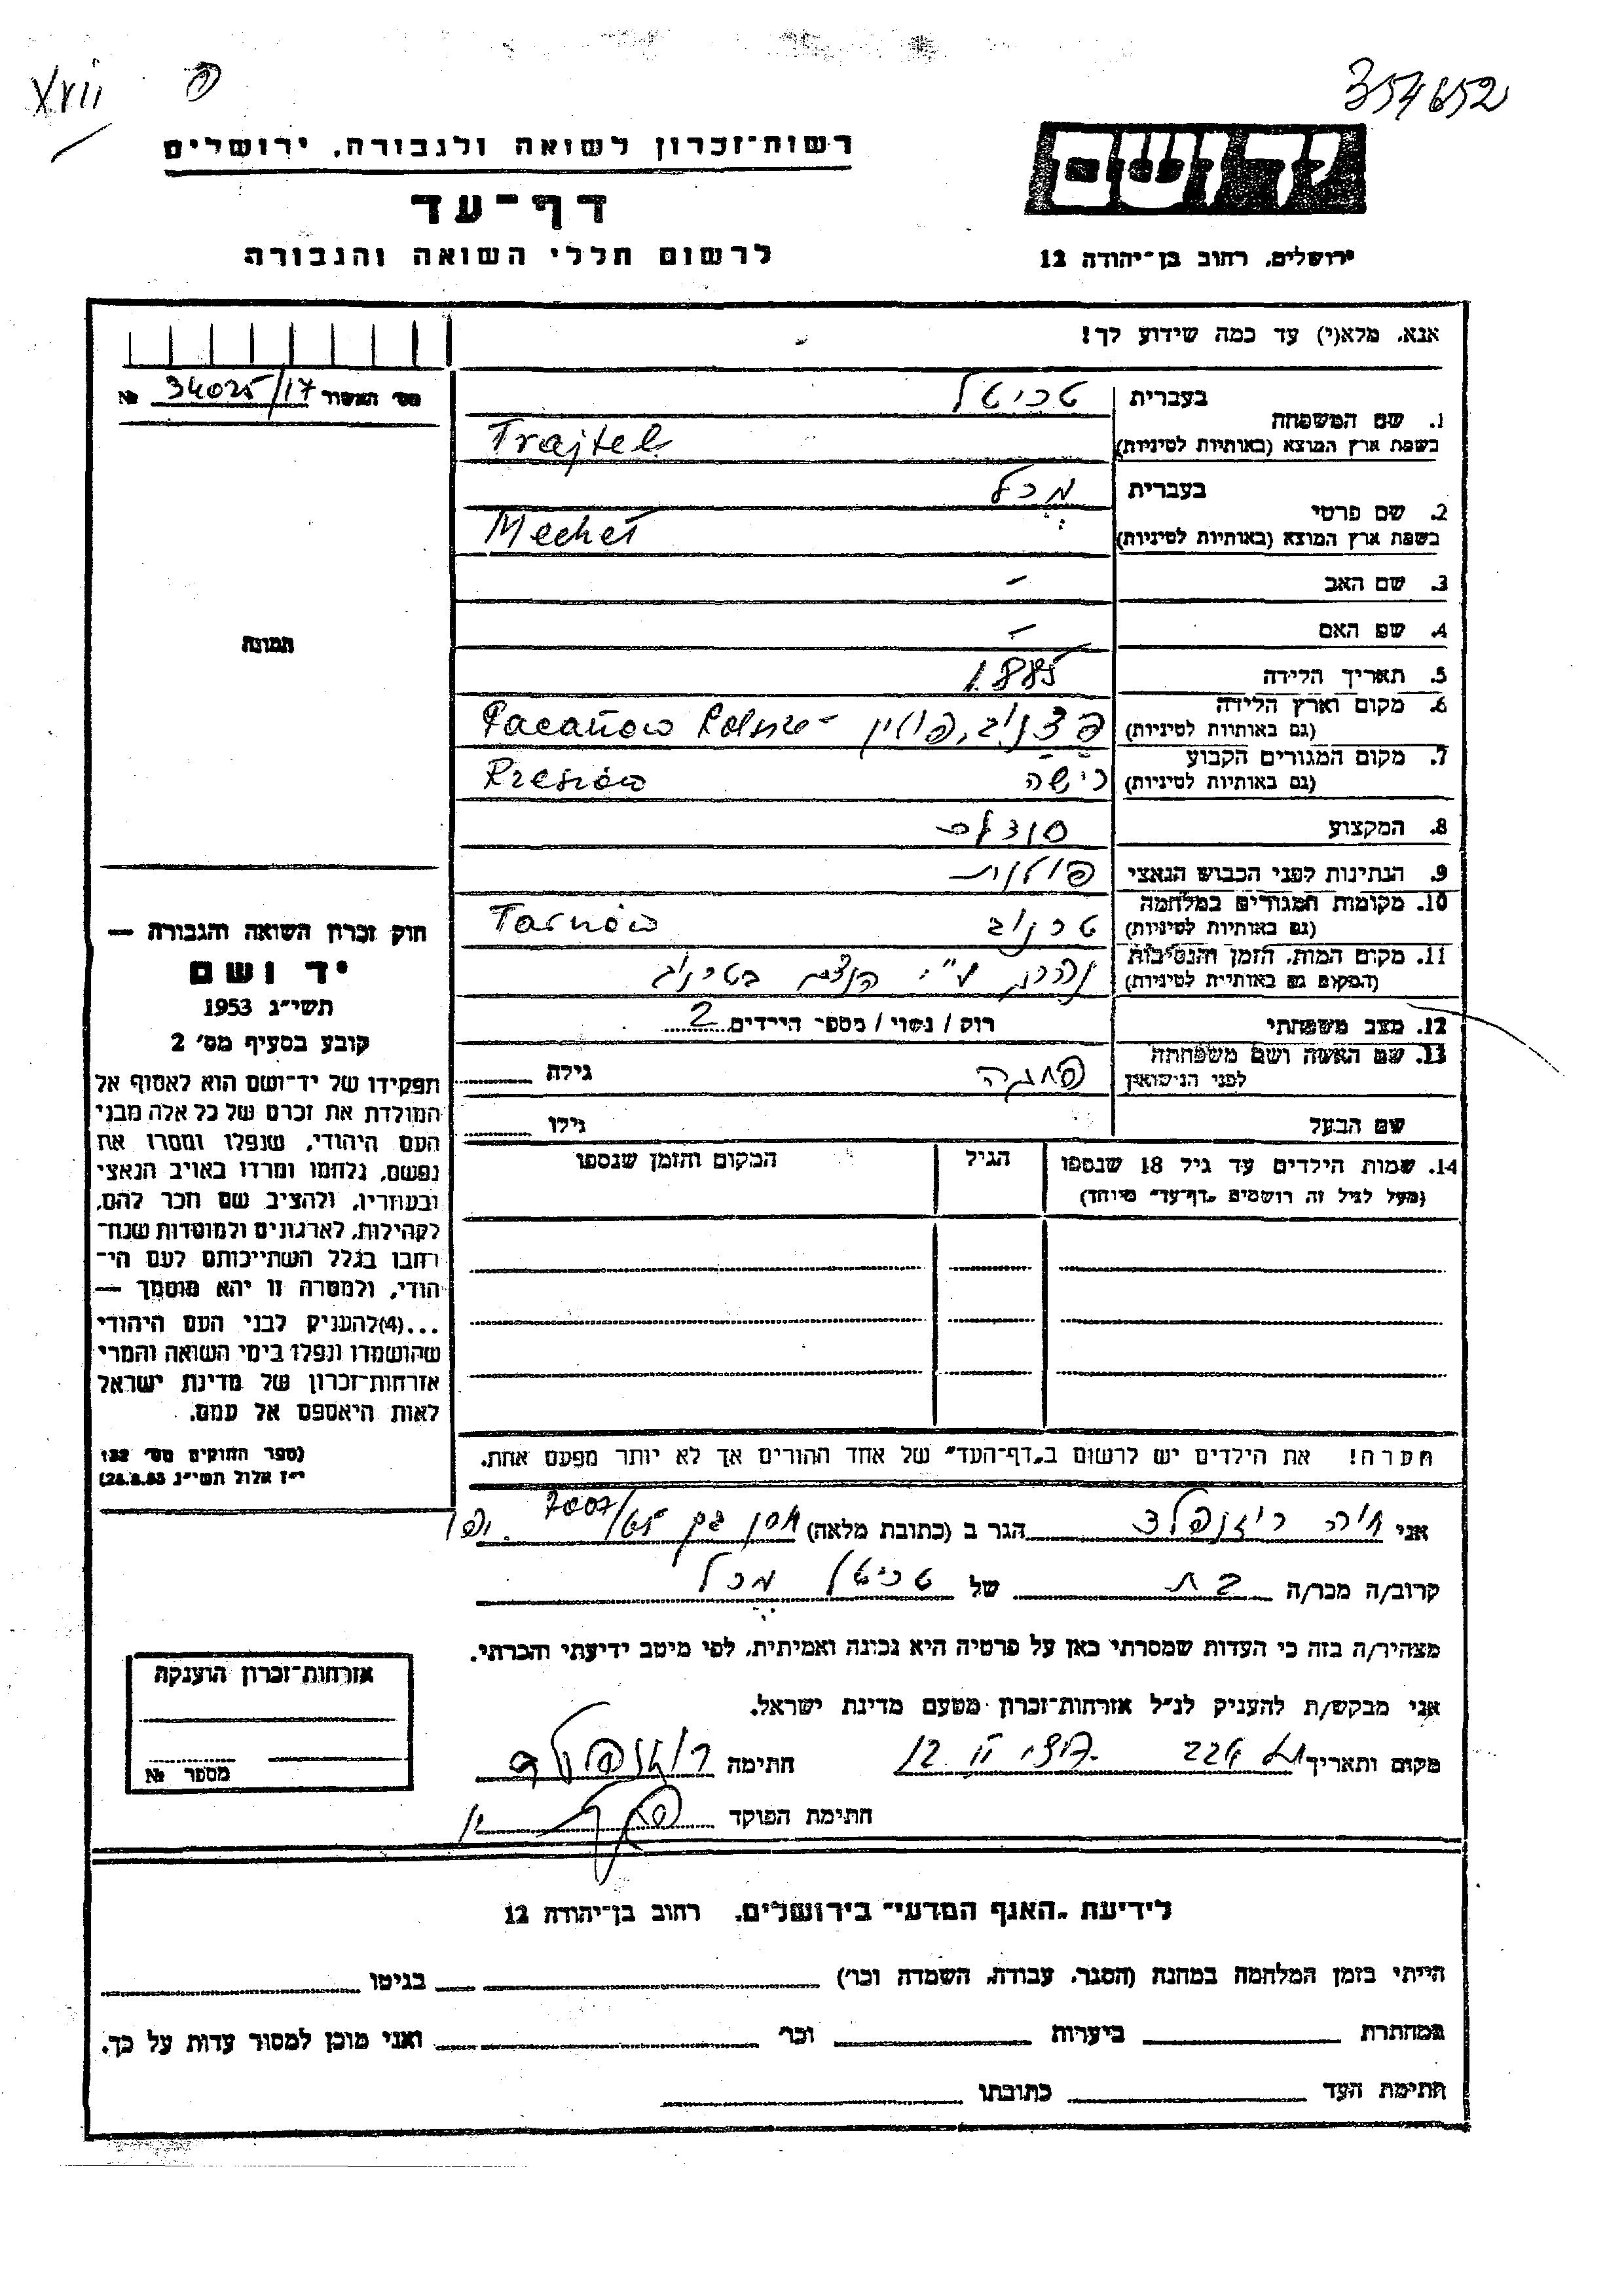 XVII
354652
יד ושם
ירושלים, רחוב בן-יהודה 12
רשות-זכרון לשואה ולגבורה, ירושלים
דף-עד
לרשום חללי השואה והגבורה
אנא, מלא(י) עד כמה שידוע לך!
מס' האשור 34025/17 №
1. שם המשפחה
בעברית טריטל
בשפת ארץ המוצא (באותיות לטיניות) Trajtel
2. שם פרטי
בעברית מכל
בשפת ארץ המוצא (באותיות לטיניות) Mechel
3. שם האב -
4. שם האם -
5. תאריך הלידה 1885
6. מקום וארץ הלידה
(גם באותיות לטיניות) פצנוב, פולין - Pacanów Polska
7. מקום המגורים הקבוע
(גם באותיות לטיניות)
8. המקצוע
9. הנתינות לפני הכבוש הנאצי פולנית
10. מקומות המגורים במלחמה
(גם באותיות לטיניות) טרנוב Tarnów
11. מקום המות, הזמן והנסיבות
(המקום גם באותיות לטיניות) נהרג ע"י הנאצים בטרנוב
12. מצב משפחתי רוק / נשוי / מספר הילדים 2
13. שם האשה ושם משפחתה
לפני הנישואין גילה
שם הבעל גילו
14. שמות הילדים עד גיל 18 שנספו הגיל המקום והזמן שנספו
(מעל לגיל זה רושמים "דף-עד" מיוחד)
הערה! את הילדים יש לרשום ב"דף-העד" של אחד ההורים אך לא יותר מפעם אחת.
תמונה
חוק זכרון השואה והגבורה —
יד ושם
תשי"ג 1953
קובע בסעיף מס' 2
תפקידו של יד-ושם הוא לאסוף אל
המולדת את זכרם של כל אלה מבני
העם היהודי, שנפלו ומסרו את
נפשם, נלחמו ומרדו באויב הנאצי
ובעוזריו, ולהציב שם וזכר להם,
לקהילות, לארגונים ולמוסדות שנח-
רבו בגלל השתייכותם לעם הי-
הודי, ולמטרה זו יהא מוסמך —
...(4) להעניק לבני העם היהודי
שהושמדו ונפלו בימי השואה והמרי
אזרחות-זכרון של מדינת ישראל
לאות היאספם אל עמם.
(ספר החוקים מס' 132
י"ז אלול תשי"ג 28.8.53)
אני חיה הגר ב (כתובת מלאה) 7007/ יפו
קרוב/ה מכר/ה בת של טריטל מכל
מצהיר/ה בזה כי העדות שמסרתי כאן על פרטיה היא נכונה ואמיתית, לפי מיטב ידיעתי והכרתי.
אני מבקש/ת להעניק לנ"ל אזרחות-זכרון מטעם מדינת ישראל.
מקום ותאריך חתימה
חתימת הפוקד
אזרחות-זכרון הוענקה
מספר №
לידיעת "האגף המדעי" בירושלים, רחוב בן-יהודה 12
הייתי בזמן המלחמה במחנה (הסגר, עבודה, השמדה וכו') בגיטו
במחתרת ביערות וכו' ואני מוכן למסור עדות על כך.
חתימת העד כתובתו